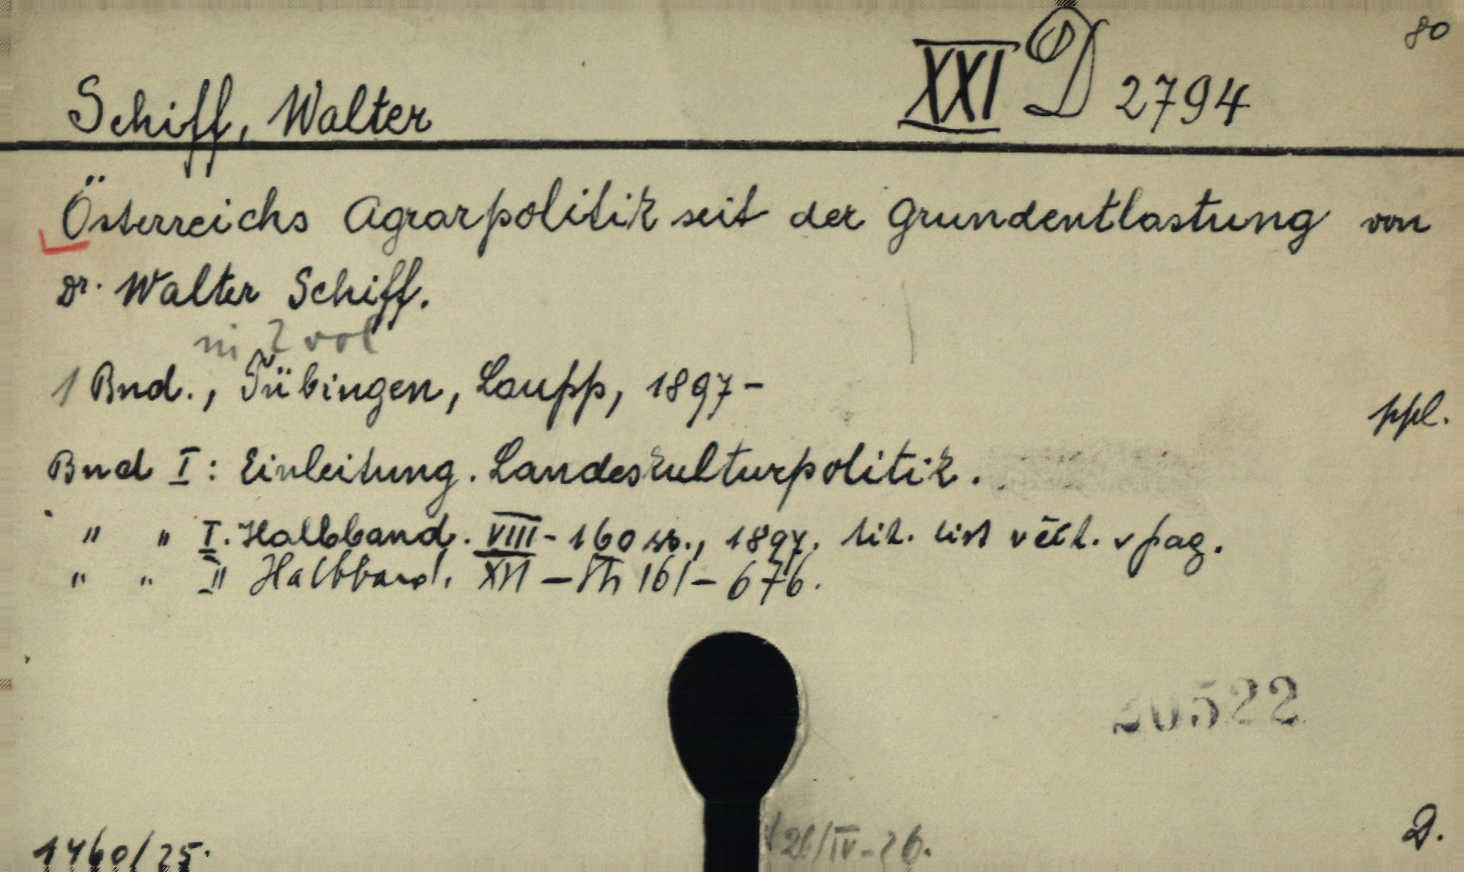 80
Schiff, Walter XXI D 2794
Österreichs Agrarpolitik seit der Grundentlastung von
Dr. Walter Schiff.
in 2 vol
1 Bnd., Tübingen, Laupp, 1897-
ppl.
Bnd I: Einleitung. Landeskulturpolitik.
" " I. Halbband. VIII-160 str., 1897. tit. list včet. v pag.
" " II Halbband. XVI - 161-676.
20522
1460/25.
26/IV-26.
D.